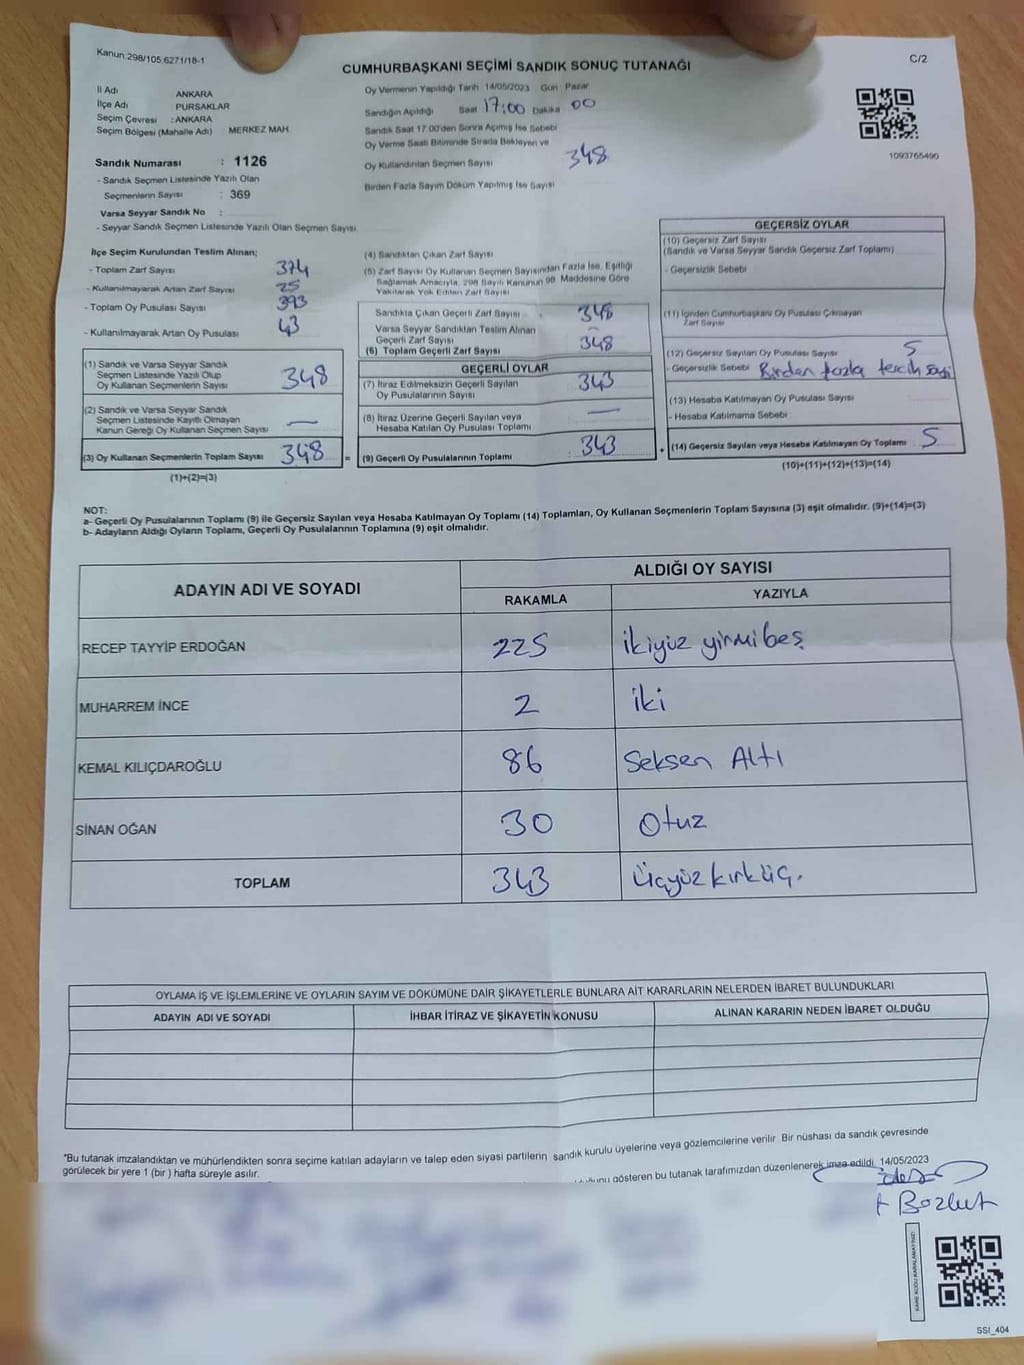 Kanun 298/105,6271/18-1
C/2
CUMHURBAŞKANI SEÇİMİ SANDIK SONUÇ TUTANAĞI
İl Adı ANKARA
İlçe Adı PURSAKLAR
Seçim Çevresi :ANKARA
Seçim Bölgesi (Mahalle Adı) MERKEZ MAH.
Sandık Numarası : 1126
- Sandık Seçmen Listesinde Yazılı Olan
Seçmenlerin Sayısı : 369
Varsa Seyyar Sandık No :
- Seyyar Sandık Seçmen Listesinde Yazılı Olan Seçmen Sayısı
Oy Vermenin Yapıldığı Tarih 14/05/2023 Gün Pazar
Sandığın Açıldığı Saat 17:00 Dakika 00
Sandık Saat 17:00'den Sonra Açımış İse Sebebi
Oy Verme Saati Bitiminde Sırada Bekleyen ve
Oy Kullandırılan Seçmen Sayısı 348
Birden Fazla Sayım Döküm Yapılmış İse Sayısı
1093765490
İlçe Seçim Kurulundan Teslim Alınan;
- Toplam Zarf Sayısı 374
- Kullanılmayarak Artan Zarf Sayısı 25
- Toplam Oy Pusulası Sayısı 393
- Kullanılmayarak Artan Oy Pusulası 43
(1) Sandık ve Varsa Seyyar Sandık
Seçmen Listesinde Yazılı Olup
Oy Kullanan Seçmenlerin Sayısı 348
(2) Sandık ve Varsa Seyyar Sandık
Seçmen Listesinde Kayıtlı Olmayan
Kanun Gereği Oy Kullanan Seçmen Sayısı —
(3) Oy Kullanan Seçmenlerin Toplam Sayısı 348 =
(1)+(2)=(3)
(4) Sandıktan Çıkan Zarf Sayısı
(5) Zarf Sayısı Oy Kullanan Seçmen Sayısından Fazla İse, Eşitliği
Sağlamak Amacıyla, 298 Sayılı Kanunun 98. Maddesine Göre
Yakılarak Yok Edilen Zarf Sayısı
Sandıkta Çıkan Geçerli Zarf Sayısı : 348
Varsa Seyyar Sandıktan Teslim Alınan
Geçerli Zarf Sayısı —
(6) Toplam Geçerli Zarf Sayısı 348
GEÇERLİ OYLAR
(7) İtiraz Edilmeksizin Geçerli Sayılan
Oy Pusulasının Sayısı 343
(8) İtiraz Üzerine Geçerli Sayılan veya
Hesaba Katılan Oy Pusulası Toplamı —
(9) Geçerli Oy Pusulalarının Toplamı 343 +
GEÇERSİZ OYLAR
(10) Geçersiz Zarf Sayısı
(Sandık ve Varsa Seyyar Sandık Geçersiz Zarf Toplamı)
- Geçersizlik Sebebi
(11) İçinden Cumhurbaşkanı Oy Pusulası Çıkmayan
Zarf Sayısı
(12) Geçersiz Sayılan Oy Pusulası Sayısı 5
- Geçersizlik Sebebi Birden fazla tercih
(13) Hesaba Katılmayan Oy Pusulası Sayısı
- Hesaba Katılmama Sebebi
(14) Geçersiz Sayılan veya Hesaba Katılmayan Oy Toplamı 5
(10)+(11)+(12)+(13)=(14)
NOT:
a- Geçerli Oy Pusulalarının Toplamı (9) ile Geçersiz Sayılan veya Hesaba Katılmayan Oy Toplamı (14) Toplamları, Oy Kullanan Seçmenlerin Toplam Sayısına (3) eşit olmalıdır. (9)+(14)=(3)
b- Adayların Aldığı Oyların Toplamı, Geçerli Oy Pusulalarının Toplamına (9) eşit olmalıdır.
ADAYIN ADI VE SOYADI
ALDIĞI OY SAYISI
RAKAMLA YAZIYLA
RECEP TAYYİP ERDOĞAN 225 ikiyüz yirmibeş
MUHARREM İNCE 2 iki
KEMAL KILIÇDAROĞLU 86 Seksen Altı
SİNAN OĞAN 30 Otuz
TOPLAM 343 Üçyüzkırküç.
OYLAMA İŞ VE İŞLEMLERİNE VE OYLARIN SAYIM VE DÖKÜMÜNE DAİR ŞİKAYETLERLE BUNLARA AİT KARARLARIN NELERDEN İBARET BULUNDUKLARI
ADAYIN ADI VE SOYADI İHBAR İTİRAZ VE ŞİKAYETİN KONUSU ALINAN KARARIN NEDEN İBARET OLDUĞU
*Bu tutanak imzalandıktan ve mühürlendikten sonra seçime katılan adayların ve talep eden siyasi partilerin sandık kurulu üyelerine veya gözlemcilerine verilir. Bir nüshası da sandık çevresinde
görülecek bir yere 1 (bir ) hafta süreyle asılır.
gösteren bu tutanak tarafımızdan düzenlenerek imza edildi. 14/05/2023
Bozkurt
KARE KODU KARALAMAYINIZ!
SSI_404